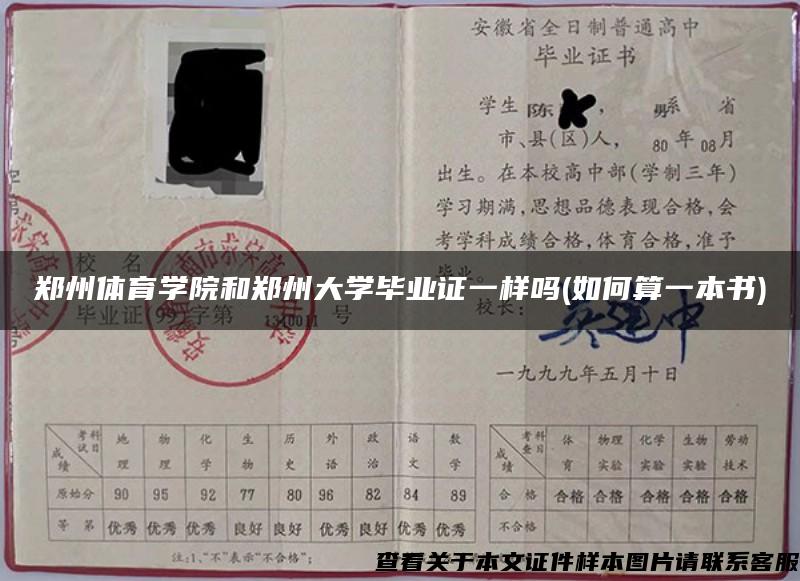 安徽省全日制普通高中
毕业证书
学生陈 ， 男系 省
市、县(区)人， 80年08月
出生。在本校高中部(学制三年)
学习期满,思想品德表现合格,会
考学科成绩合格,体育合格,准予
毕业。
校名
郑州体育学院和郑州大学毕业证一样吗(如何算一本书)
校长：
毕业证(99)字第 号
一九九九年五月十日
考试科目 地理 物理 化学 生物 历史 外语 政治 语文 数学
成绩
原始分 90 95 92 77 80 96 82 84 89
等第 优秀 优秀 优秀 良好 良好 优秀 良好 优秀 优秀
考查科目 体育 物理实验 化学实验 生物实验 劳动技术
成绩
合格 合格 合格 合格 合格 合格
不合格
注:1、"不"表示"不合格";
查看关于本文证件样本图片请联系客服